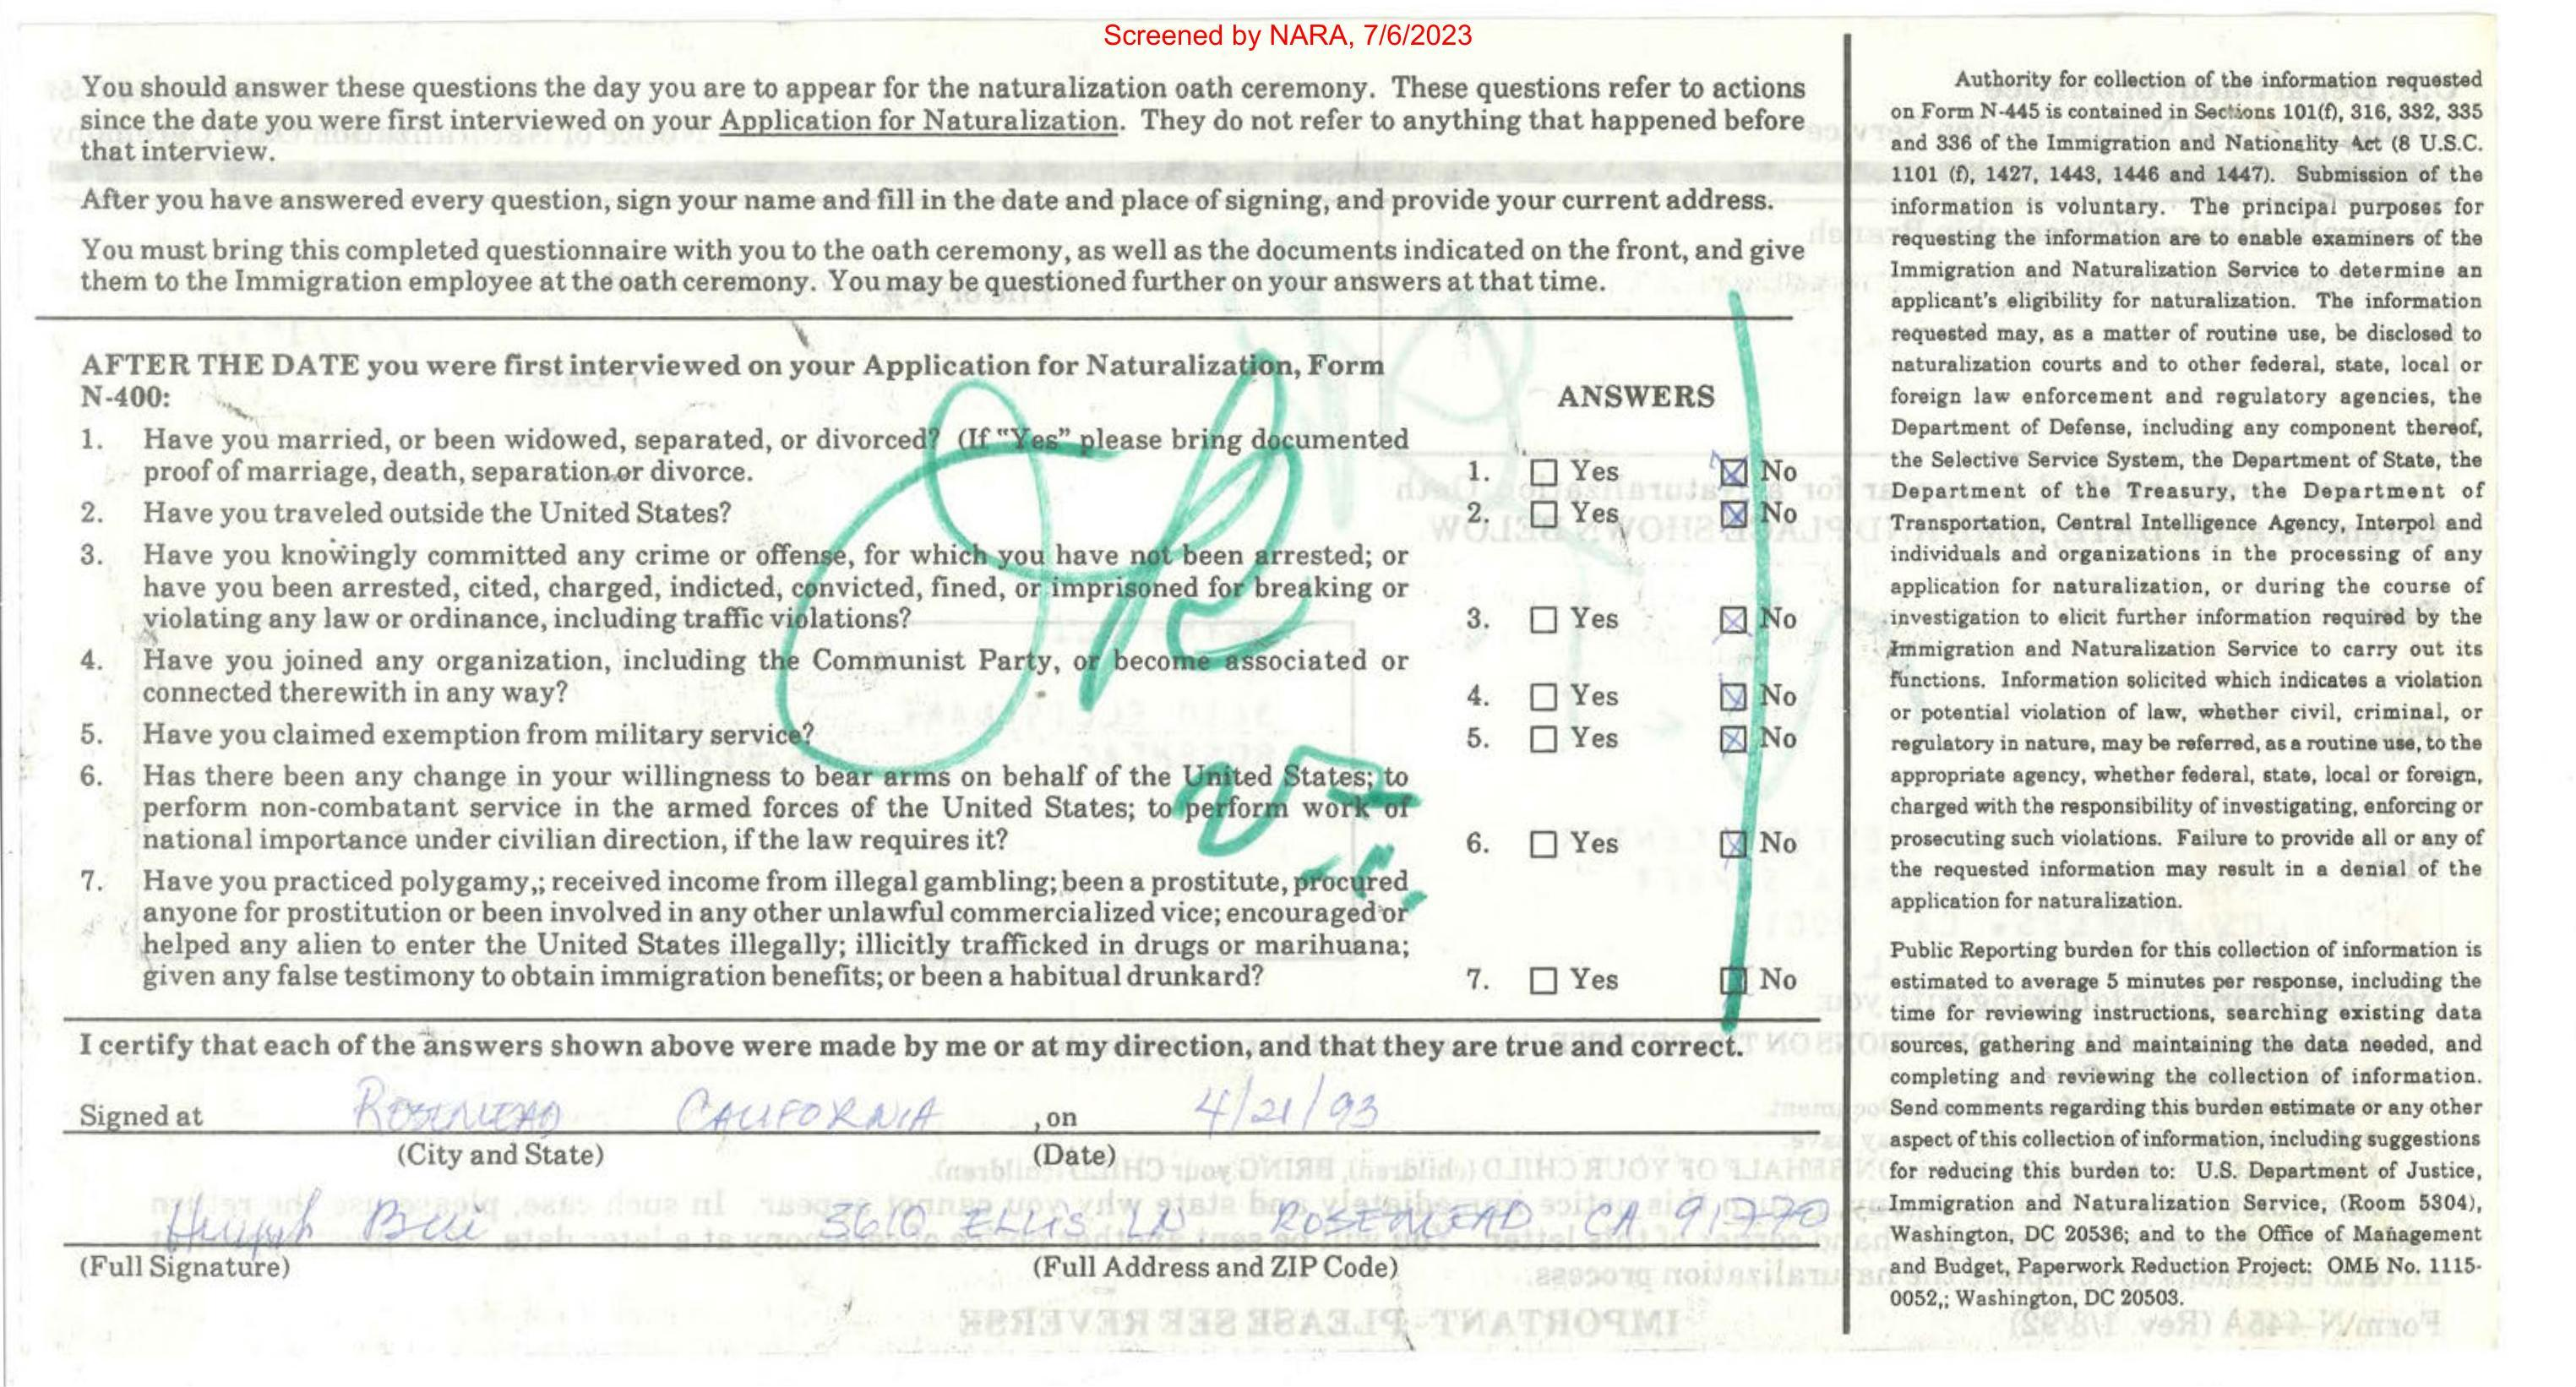 Screened by NARA, 7/6/2023
You should answer these questions the day you are to appear for the naturalization oath ceremony. These questions refer to actions
since the date you were first interviewed on your Application for Naturalization. They do not refer to anything that happened before
that interview.
After you have answered every question, sign your name and fill in the date and place of signing, and provide your current address.
You must bring this completed questionnaire with you to the oath ceremony, as well as the documents indicated on the front, and give
them to the Immigration employee at the oath ceremony. You may be questioned further on your answers at that time.
AFTER THE DATE you were first interviewed on your Application for Naturalization, Form
N-400:
ANSWERS
1. Have you married, or been widowed, separated, or divorced? (If "Yes" please bring documented
proof of marriage, death, separation or divorce.
1. ☐ Yes ☒ No
2. Have you traveled outside the United States?
2. ☐ Yes ☒ No
3. Have you knowingly committed any crime or offense, for which you have not been arrested; or
have you been arrested, cited, charged, indicted, convicted, fined, or imprisoned for breaking or
violating any law or ordinance, including traffic violations?
3. ☐ Yes ☒ No
4. Have you joined any organization, including the Communist Party, or become associated or
connected therewith in any way?
4. ☐ Yes ☒ No
5. Have you claimed exemption from military service?
5. ☐ Yes ☒ No
6. Has there been any change in your willingness to bear arms on behalf of the United States; to
perform non-combatant service in the armed forces of the United States; to perform work of
national importance under civilian direction, if the law requires it?
6. ☐ Yes ☒ No
7. Have you practiced polygamy,; received income from illegal gambling; been a prostitute, procured
anyone for prostitution or been involved in any other unlawful commercialized vice; encouraged or
helped any alien to enter the United States illegally; illicitly trafficked in drugs or marihuana;
given any false testimony to obtain immigration benefits; or been a habitual drunkard?
7. ☐ Yes ☐ No
OK
I certify that each of the answers shown above were made by me or at my direction, and that they are true and correct.
Signed at ROSEMEAD CALIFORNIA , on 4/21/93
(City and State) (Date)
Huynh Bui 3610 ELLIS LN ROSEMEAD CA 91770
(Full Signature) (Full Address and ZIP Code)
Authority for collection of the information requested
on Form N-445 is contained in Sections 101(f), 316, 332, 335
and 336 of the Immigration and Nationality Act (8 U.S.C.
1101 (f), 1427, 1443, 1446 and 1447). Submission of the
information is voluntary. The principal purposes for
requesting the information are to enable examiners of the
Immigration and Naturalization Service to determine an
applicant's eligibility for naturalization. The information
requested may, as a matter of routine use, be disclosed to
naturalization courts and to other federal, state, local or
foreign law enforcement and regulatory agencies, the
Department of Defense, including any component thereof,
the Selective Service System, the Department of State, the
Department of the Treasury, the Department of
Transportation, Central Intelligence Agency, Interpol and
individuals and organizations in the processing of any
application for naturalization, or during the course of
investigation to elicit further information required by the
Immigration and Naturalization Service to carry out its
functions. Information solicited which indicates a violation
or potential violation of law, whether civil, criminal, or
regulatory in nature, may be referred, as a routine use, to the
appropriate agency, whether federal, state, local or foreign,
charged with the responsibility of investigating, enforcing or
prosecuting such violations. Failure to provide all or any of
the requested information may result in a denial of the
application for naturalization.
Public Reporting burden for this collection of information is
estimated to average 5 minutes per response, including the
time for reviewing instructions, searching existing data
sources, gathering and maintaining the data needed, and
completing and reviewing the collection of information.
Send comments regarding this burden estimate or any other
aspect of this collection of information, including suggestions
for reducing this burden to: U.S. Department of Justice,
Immigration and Naturalization Service, (Room 5304),
Washington, DC 20536; and to the Office of Management
and Budget, Paperwork Reduction Project: OMB No. 1115-
0052,; Washington, DC 20503.